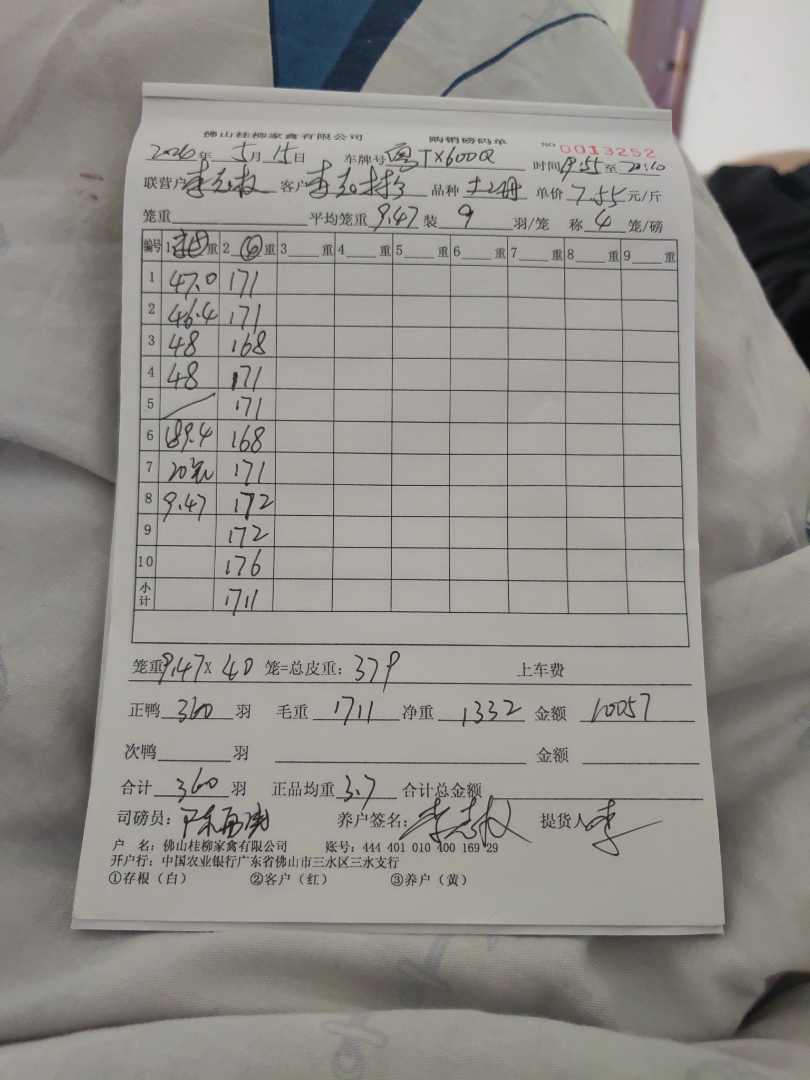 佛山桂柳家禽有限公司 购销磅码单 NO 0013252
2026年 5月 15日 车牌号 粤TX600Q 时间 19:55 至 20:10
联营户 李志权 客户 品种 单价 7.55 元/斤
笼重 平均笼重 9.47 装 9 羽/笼 称 4 笼/磅
编号 1 重 2 重 3 重 4 重 5 重 6 重 7 重 8 重 9 重
1 47.0 171
2 46.4 171
3 48 168
4 48 171
5 171
6 189.4 168
7 20笼 171
8 9.47 172
9 172
10 176
小计 1711
笼重 9.47 X 40 笼=总皮重: 379 上车费
正鸭 360 羽 毛重 1711 净重 1332 金额 10057
次鸭 羽 金额
合计 360 羽 正品均重 3.7 合计总金额
司磅员: 养户签名: 李志权 提货人 李
户 名: 佛山桂柳家禽有限公司 账号: 444 401 010 400 169 29
开户行: 中国农业银行广东省佛山市三水区三水支行
①存根(白) ②客户(红) ③养户(黄)